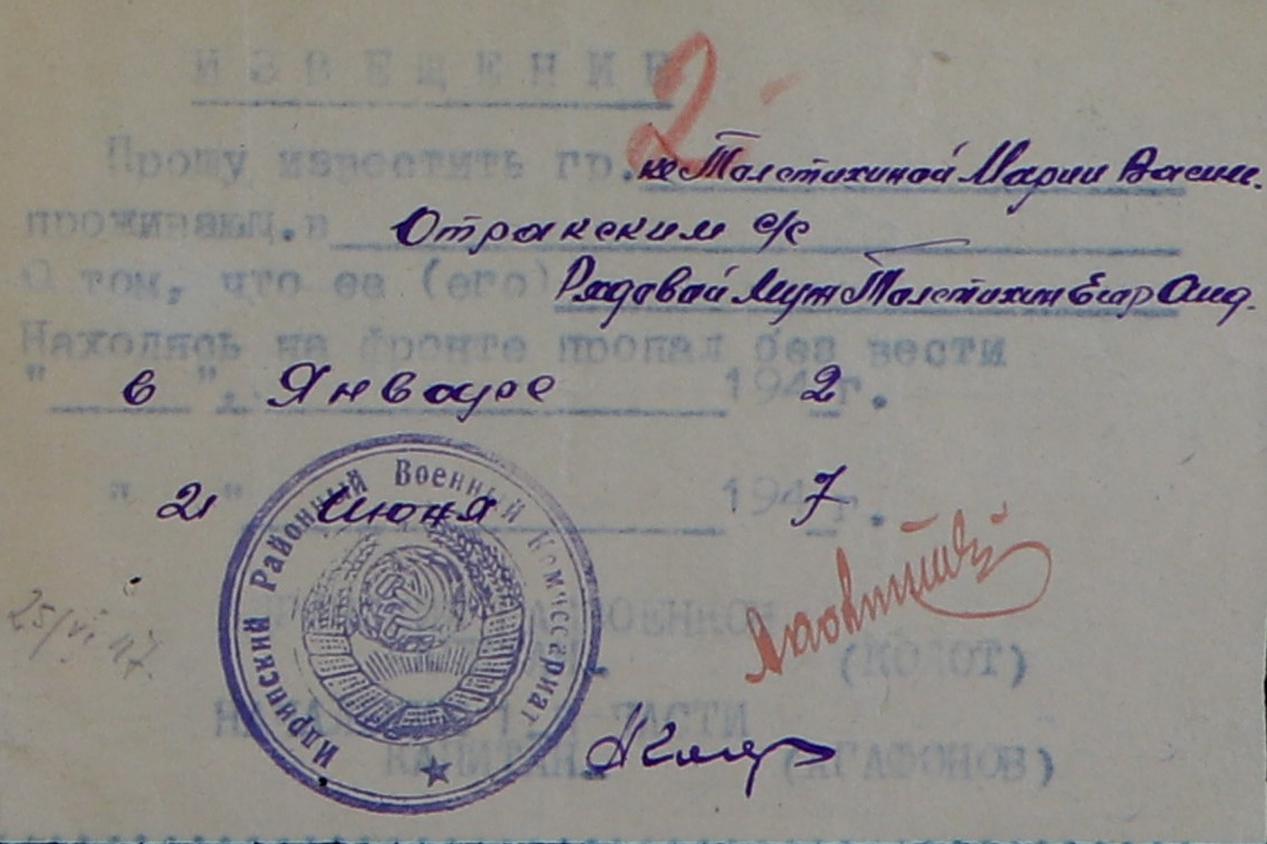 ИЗВЕЩЕНИЕ
2
Прошу известить гр.ке Толстихиной Марии Васил.
проживающ.в Отрокским с/с
О том, что ее (его) Рядовой Муж Толстихин Егор Анд.
Находясь на фронте пропал без вести
" в " Январе 1942г.
" 21 " Июня 1947г.
Идринский Районный Военный Комиссариат
25/VI 47.
РАЙВОЕНКОМ
(КОЛОТ)
НАЧАЛЬНИК 1 ЧАСТИ
КАПИТАН (АГАФОНОВ)